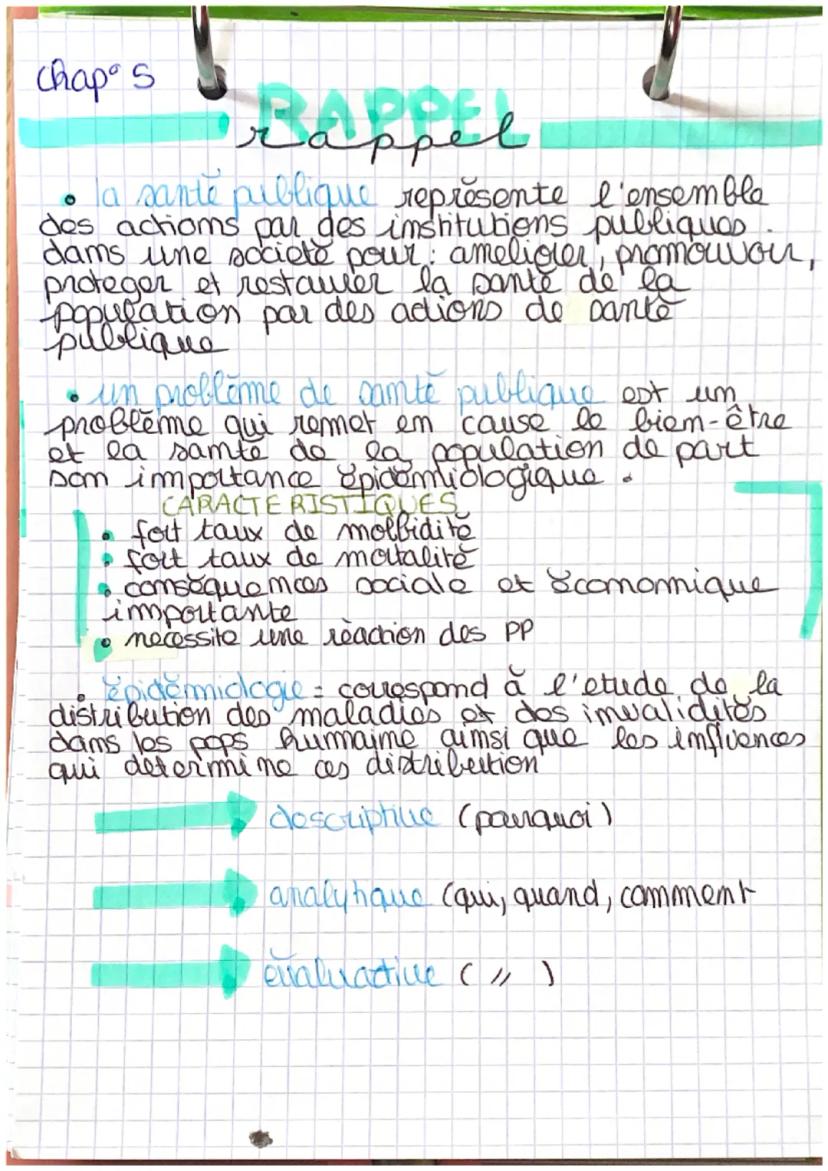 Chap° 5
RAPPEL
rappel
• la santé publique représente l'ensemble
des actions par des institutions publiques.
dans une société pour : ameliorer, promouvoir,
proteger et restaurer la santé de la
population par des actions de santé
publique
• un problème de santé publique est un
problème qui remet en cause le bien-être
et la santé de la population de part
son importance épidémiologique.
CARACTERISTIQUES
• fort taux de morbidité
• fort taux de mortalité
• conséquences sociale et économique
importante
• necessite une réaction des PP
• épidémiologie = correspond à l'etude de la
distribution des maladies et des invalidités
dans les pops humaine ainsi que les influences
qui determine ces distribution
descriptive (pourquoi)
analytique (qui, quand, comment
évaluative ( // )